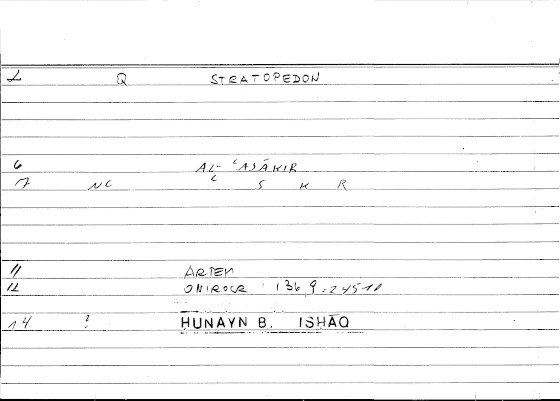 2 Q STRATOPEDON
6 AL- ʿASĀKIR
7 NC ʿ S K R
11 ARTEM
12 ONIROCR 136,9 = 245,10
14 ? HUNAYN B. ISHĀQ